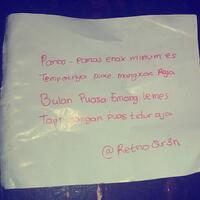 Panas - Panas enak minum es
Tempatnya pake mangkuk Raja
Bulan Puasa Emang lemes
Tapi Jangan Puas tidur aja
@Retno